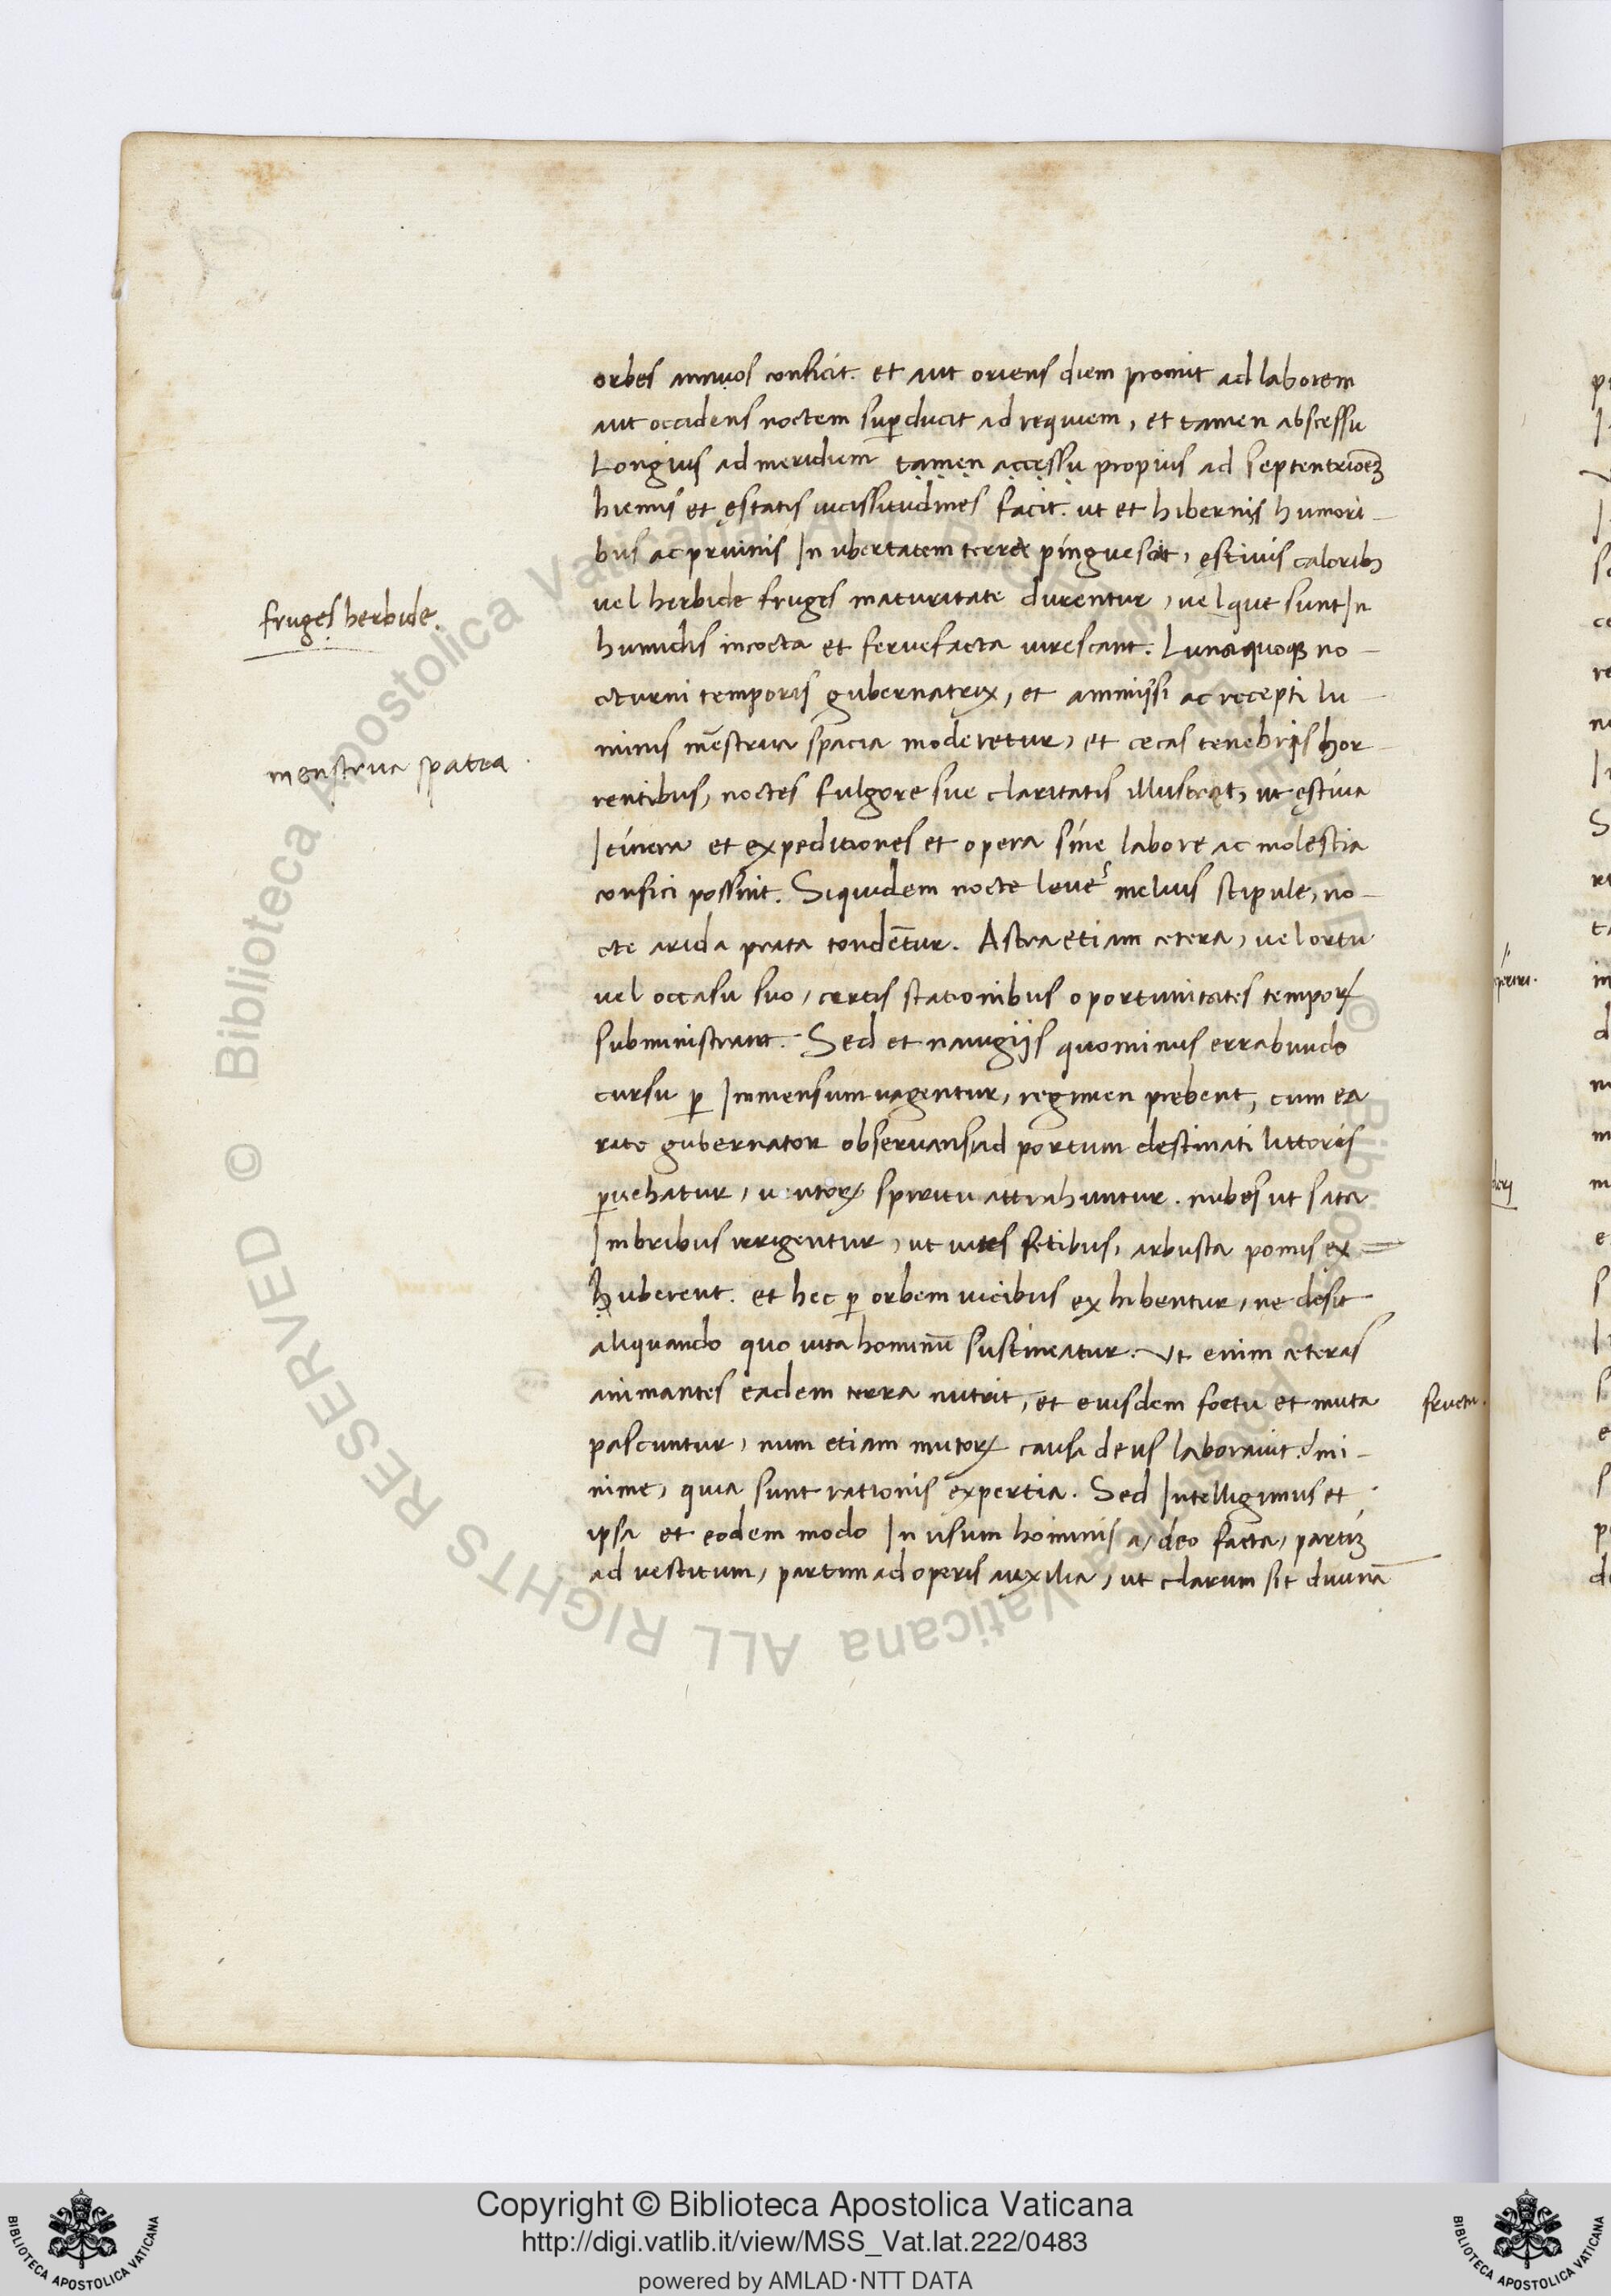 orbes annuos conficit. et aut oriens diem promit ad laborem
aut occidens noctem suꝑducit ad requiem, et tamen abscessu
Longius ad meridiem tamen accessu propius ad septentrioẽȝ
hiemis et ęstatis uicissitudines facit. ut et hibernis humori-
bus ac pruinis In ubertatem terre pinguescat, ęstiuis caloribȝ
uel herbide fruges maturitate durentur, uel que sunt In
humidis incocta et feruefacta uirescant. Luna quoqȝ no-
cturni temporis gubernatrix, et ammissi ac recepti lu-
minis mẽstrua spacia moderetur, et cecas tenebris hor-
rentibus, noctes fulgore sue claritatis illustret, ut ęstiua
Itinera et expeditiones et opera sine labore ac molestia
confici possint. Siquidem nocte leues melius stipule, no-
cte arida prata tondẽtur. Astra etiam cetera, uel ortu
uel occasu suo, certis stationibus oportunitates temporꝝ
subministrant. Sed et nauigijs quominus errabundo
cursu ꝑ Immensum uagentur, regimen prebent, cum ea
rite gubernator obseruans ad portum destinati littoris
ꝑuehatur, uentorꝝ spiritu attrahuntur. nubes ut sata
Imbribus irrigentur, ut uites fetibus, arbusta pomis ex=
huberent. et hec ꝑ orbem uicibus exhibentur, ne desit
aliquando quo uita hominũ sustineatur. Ut enim ceteras
animantes eadem terra nutrit, et eiusdem foetu et muta
pascuntur, num etiam mutorꝝ causa deus laborauit? mi-
nime, quia sunt rationis expertia. Sed Intelligimus et
ipsa et eodem modo In usum hominis a, deo facta, partiȝ
ad uestitum, partim ad operis auxilia, ut clarum sit diuinã
fruges herbide.
menstrua spatia
fructu.